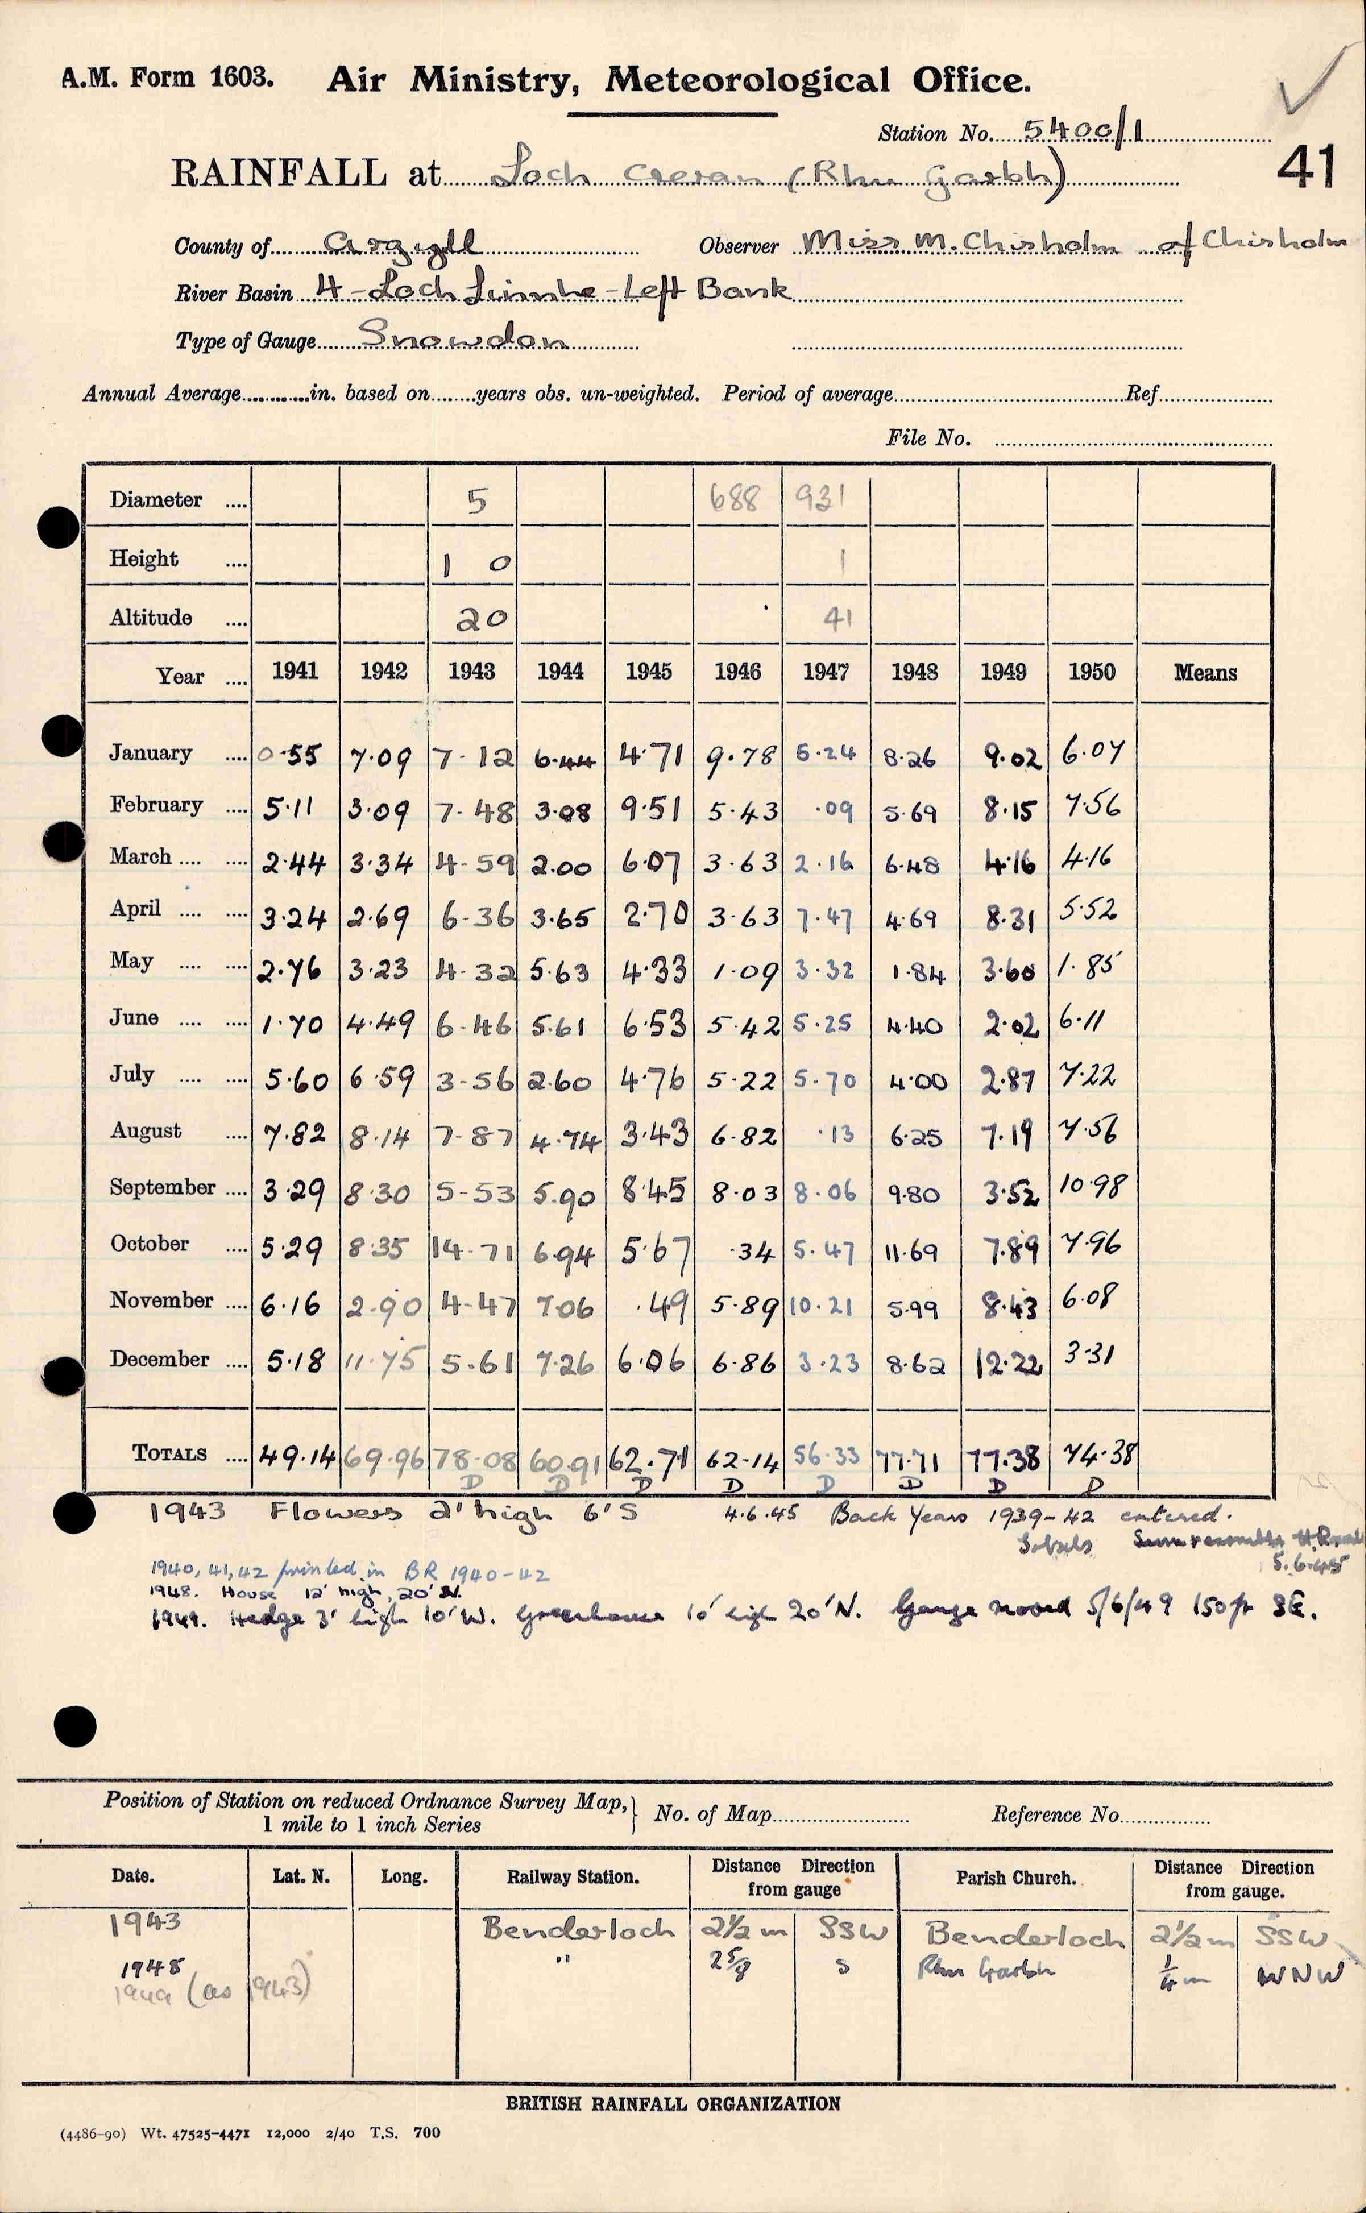 A.M. Form 1603. Air Ministry, Meteorological Office.
Station No. 5400/1
41
RAINFALL at Loch Creran (Rhu Garbh)
County of Argyll Observer Miss M. Chisholm of Chisholm
River Basin 4 - Loch Linnhe - Left Bank
Type of Gauge Snowdon
Annual Average............in. based on........years obs. un-weighted. Period of average.................... Ref....................
File No. ....................
Diameter .... 5 688 931
Height .... 1 0 1
Altitude .... 20 41
Year .... 1941 1942 1943 1944 1945 1946 1947 1948 1949 1950 Means
January .... 0.55 7.09 7-12 6.44 4.71 9.78 5.24 8.26 9.02 6.07
February .... 5.11 3.09 7-48 3.08 9.51 5.43 .09 5.69 8.15 7.56
March .... .... 2.44 3.34 4-59 2.00 6.07 3.63 2.16 6.48 4.16 4.16
April .... .... 3.24 2.69 6-36 3.65 2.70 3.63 7.47 4.69 8.31 5.52
May .... .... 2.76 3.23 4-32 5.63 4.33 1.09 3.32 1.84 3.60 1.85
June .... .... 1.70 4.49 6-46 5.61 6.53 5.42 5.25 4.40 2.02 6.11
July .... .... 5.60 6.59 3-56 2.60 4.76 5.22 5.70 4.00 2.87 7.22
August .... 7.82 8.14 7-87 4.74 3.43 6.82 .13 6.25 7.19 7.56
September .... 3.29 8.30 5-53 5.90 8.45 8.03 8.06 9.80 3.52 10.98
October .... 5.29 8.35 14-71 6.94 5.67 .34 5.47 11.69 7.89 7.96
November .... 6.16 2.90 4-47 7.06 .49 5.89 10.21 5.99 8.43 6.08
December .... 5.18 11.75 5.61 7.26 6.06 6.86 3.23 8.62 12.22 3.31
TOTALS .... 49.14 69.96 78.08 60.91 62.71 62.14 56.33 77.71 77.38 74.38
D D D D D D D D
1943 Flowers 2' high 6'S 4.6.45 Back Years 1939-42 entered.
5.6.45
1940, 41, 42 printed in BR 1940-42
1948. House 12' high, 20' N.
1949. Hedge 3' high 10' W. Greenhouse 10' high 20' N. Gauge moved 5/6/49 150 ft SE.
Position of Station on reduced Ordnance Survey Map, 1 mile to 1 inch Series } No. of Map.................... Reference No....................
Date. Lat. N. Long. Railway Station. Distance Direction from gauge Parish Church. Distance Direction from gauge.
1943 Benderloch 2½ m SSW Benderloch 2½ m SSW
1948 " 2⅝ S Rhu Garbh ¼ m WNW
1949 (as 1943)
BRITISH RAINFALL ORGANIZATION
(4486-90) Wt. 47525-4471 12,000 2/40 T.S. 700